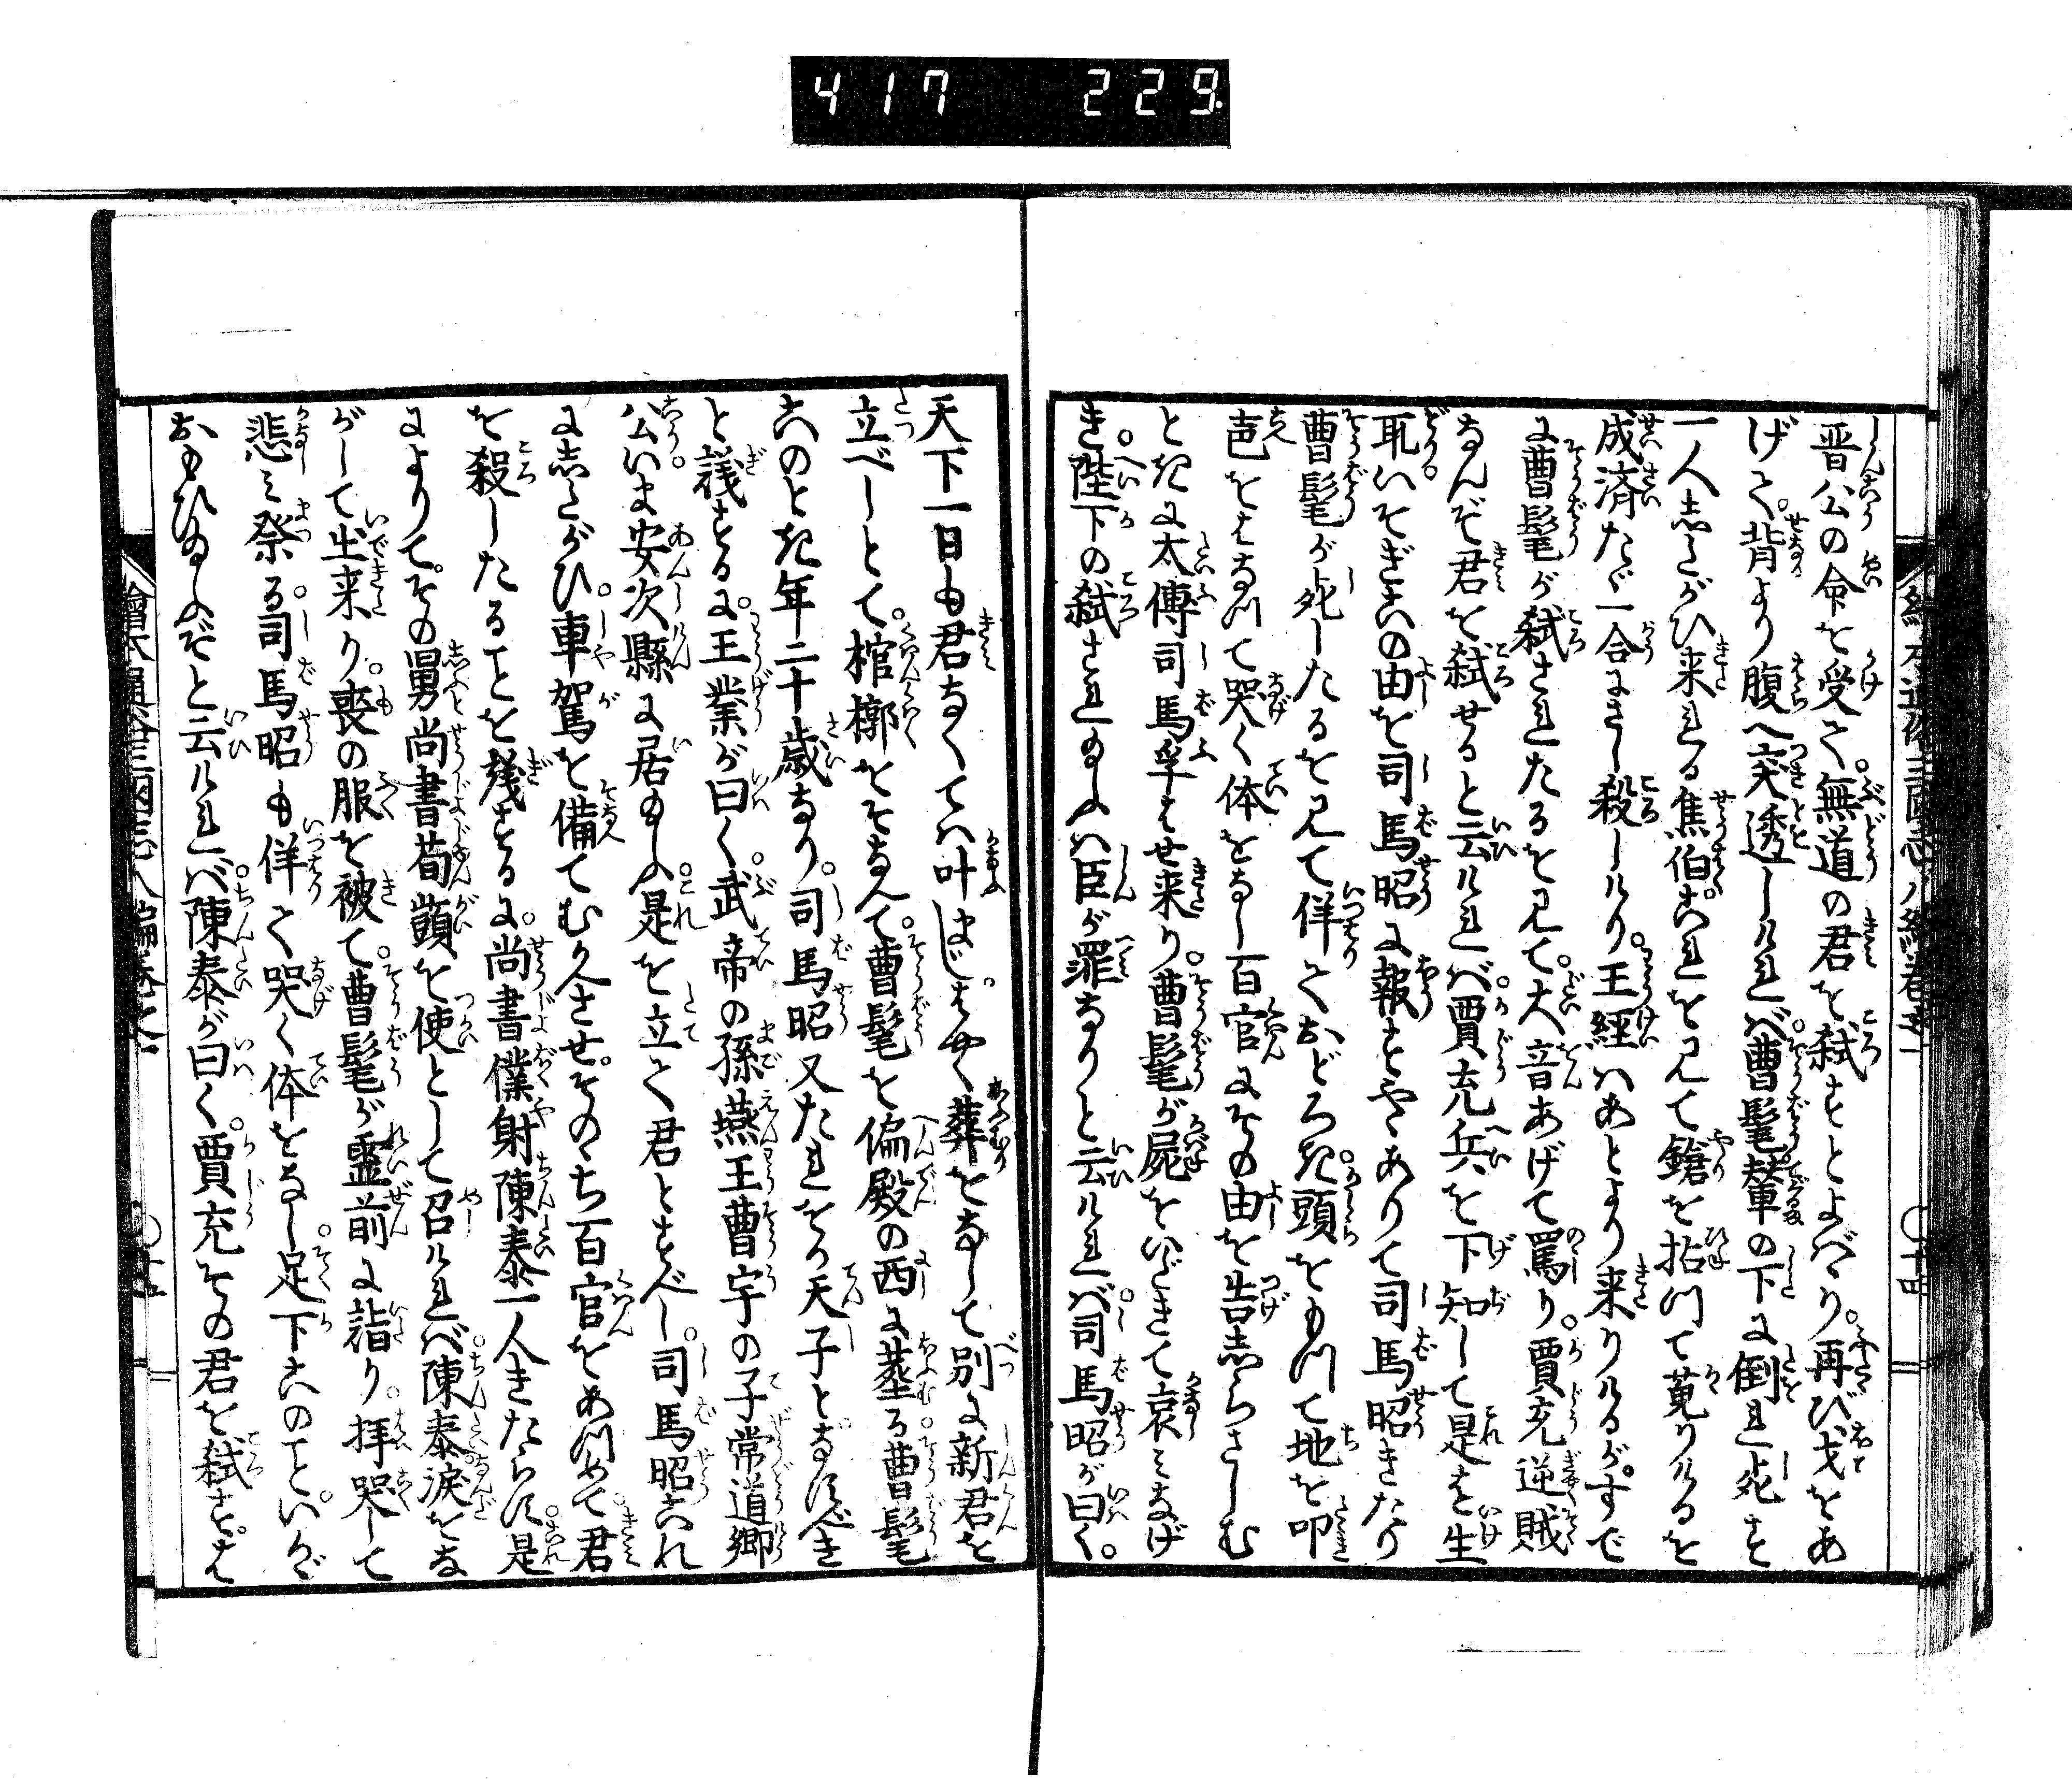 417 229.
晋公の命を受て。無道の君を弑すとよばゝり。再び戈をあ
げて。背より腹へ突透しければ。曹髦輦の下に倒れ死す
一人したがひ来れる焦伯これを見て鎗を拈つて蒐りけるを
成済たゞ一合にさし殺しけり。王経はあとより来りけるが。すで
に曹髦が弑されたるを見て。大音あげて罵り。賈充逆賊
なんぞ君を弑せると云ければ。賈充兵を下知して是を生
耴いそぎこの由を司馬昭に報ずやゝありて司馬昭きたり
曹髦が死したるを見て佯ておどろき。頭をもつて地を叩
声をはなつて哭く体をなし百官にその由を告しらさしむ
ときに太傅司馬孚はせ来り。曹髦が屍をいだきて哀みなげ
き。陛下の弑され給ふは臣が罪なりと云ければ。司馬昭が曰く。
天下一日も君なくては叶まじ。はやく葬をなして別に新君を
立べしとて。棺槨をそなへて。曹髦を偏殿の西に葬る。曹髦
このとき年二十歳なり。司馬昭又たれをか天子となすべき
と議するに。王業が曰く。武帝の孫燕王曹宇の子常道郷
公いま安次縣に居給ふ。是を立て君とすべし。司馬昭これ
にしたがひ。車駕を備てむかへさせ。そのゝち百官をあつめて。君
を殺したることを議するに。尚書僕射陳泰一人きたらず。是
によりて。その舅尚書荀顗を使として召ければ。陳泰涙をな
がして出来り。喪の服を被て。曹髦が霊前に詣り。拝哭して
悲み祭る。司馬昭も佯て哭く体をなし。足下このこと。いかゞ
おもひ給ふぞと云ければ。陳泰が曰く。賈充その君を弑す。は